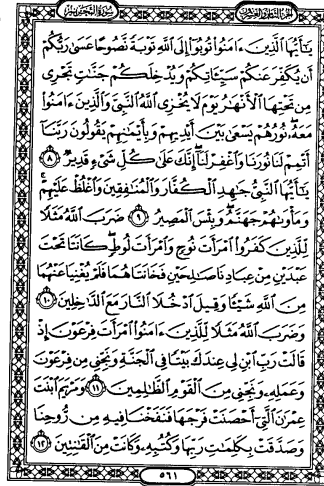 الجزء الثامن والعشرون سورة التحريم
يَٰٓأَيُّهَا ٱلَّذِينَ ءَامَنُوا۟ تُوبُوٓا۟ إِلَى ٱللَّهِ تَوْبَةً نَّصُوحًا عَسَىٰ رَبُّكُمْ
أَن يُكَفِّرَ عَنكُمْ سَيِّـَٔاتِكُمْ وَيُدْخِلَكُمْ جَنَّٰتٍ تَجْرِى
مِن تَحْتِهَا ٱلْأَنْهَٰرُ يَوْمَ لَا يُخْزِى ٱللَّهُ ٱلنَّبِىَّ وَٱلَّذِينَ ءَامَنُوا۟
مَعَهُۥ نُورُهُمْ يَسْعَىٰ بَيْنَ أَيْدِيهِمْ وَبِأَيْمَٰنِهِمْ يَقُولُونَ رَبَّنَآ
أَتْمِمْ لَنَا نُورَنَا وَٱغْفِرْ لَنَآ إِنَّكَ عَلَىٰ كُلِّ شَىْءٍ قَدِيرٌ ٨
يَٰٓأَيُّهَا ٱلنَّبِىُّ جَٰهِدِ ٱلْكُفَّارَ وَٱلْمُنَٰفِقِينَ وَٱغْلُظْ عَلَيْهِمْ
وَمَأْوَىٰهُمْ جَهَنَّمُ وَبِئْسَ ٱلْمَصِيرُ ٩ ضَرَبَ ٱللَّهُ مَثَلًا
لِّلَّذِينَ كَفَرُوا۟ ٱمْرَأَتَ نُوحٍ وَٱمْرَأَتَ لُوطٍ كَانَتَا تَحْتَ
عَبْدَيْنِ مِنْ عِبَادِنَا صَٰلِحَيْنِ فَخَانَتَاهُمَا فَلَمْ يُغْنِيَا عَنْهُمَا
مِنَ ٱللَّهِ شَيْـًٔا وَقِيلَ ٱدْخُلَا ٱلنَّارَ مَعَ ٱلدَّٰخِلِينَ ١٠
وَضَرَبَ ٱللَّهُ مَثَلًا لِّلَّذِينَ ءَامَنُوا۟ ٱمْرَأَتَ فِرْعَوْنَ إِذْ
قَالَتْ رَبِّ ٱبْنِ لِى عِندَكَ بَيْتًا فِى ٱلْجَنَّةِ وَنَجِّنِى مِن فِرْعَوْنَ
وَعَمَلِهِۦ وَنَجِّنِى مِنَ ٱلْقَوْمِ ٱلظَّٰلِمِينَ ١١ وَمَرْيَمَ ٱبْنَتَ
عِمْرَٰنَ ٱلَّتِىٓ أَحْصَنَتْ فَرْجَهَا فَنَفَخْنَا فِيهِ مِن رُّوحِنَا
وَصَدَّقَتْ بِكَلِمَٰتِ رَبِّهَا وَكُتُبِهِۦ وَكَانَتْ مِنَ ٱلْقَٰنِتِينَ ١٢
٥٦١